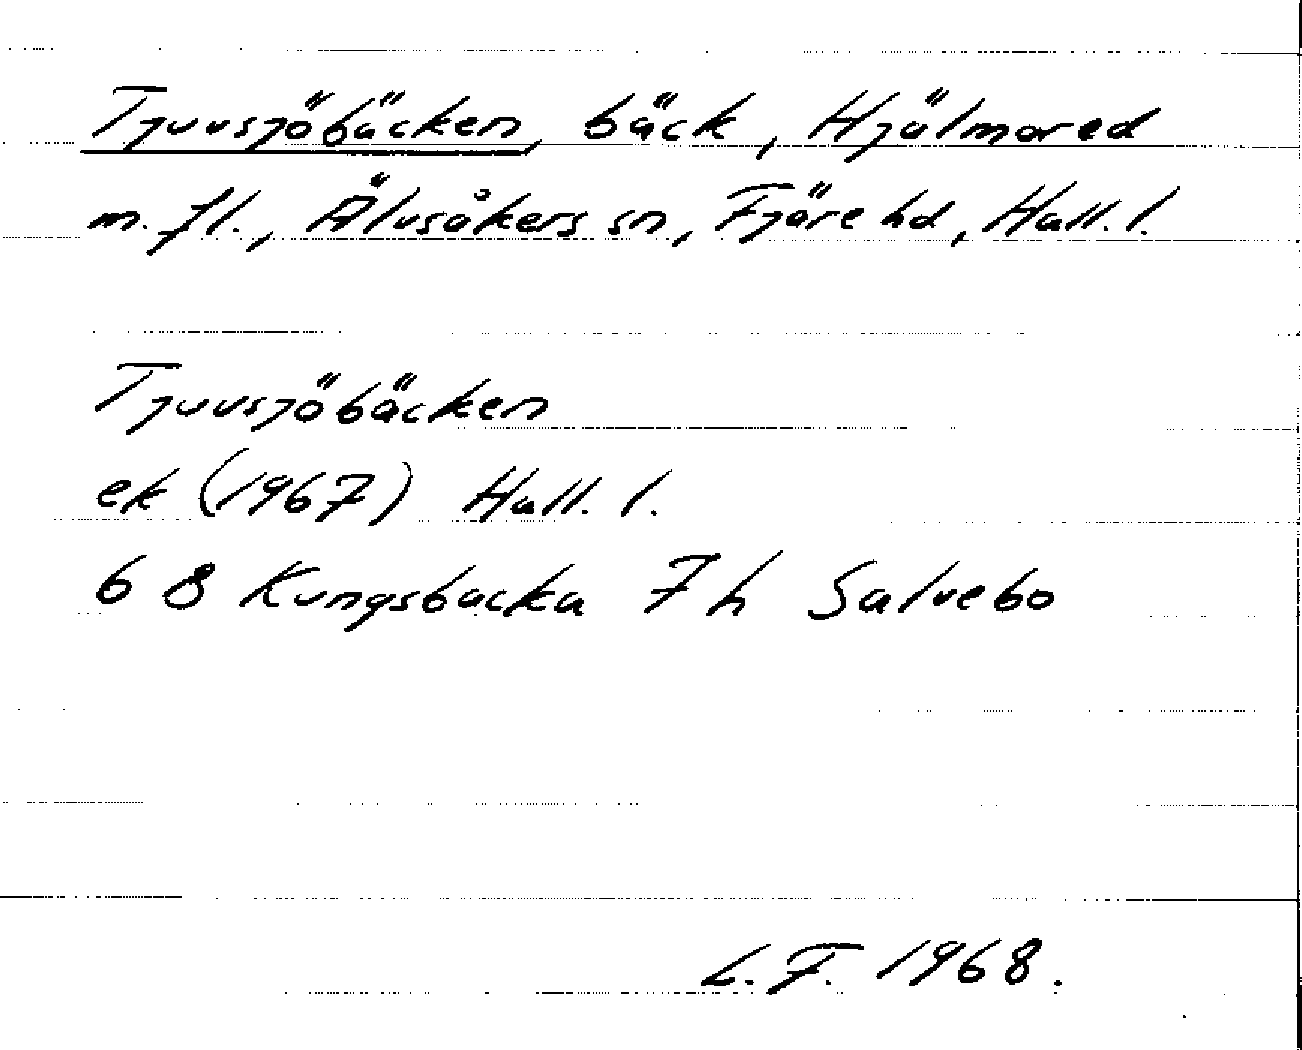 Tjuvsjöbäcken, bäck, Hjälmared
m. fl., Älvsåkers sn, Fjäre hd, Hall. l.
Tjuvsjöbäcken
ek (1967) Hall. l.
6 B Kungsbacka 7 h Salvebo
L. F. 1968.